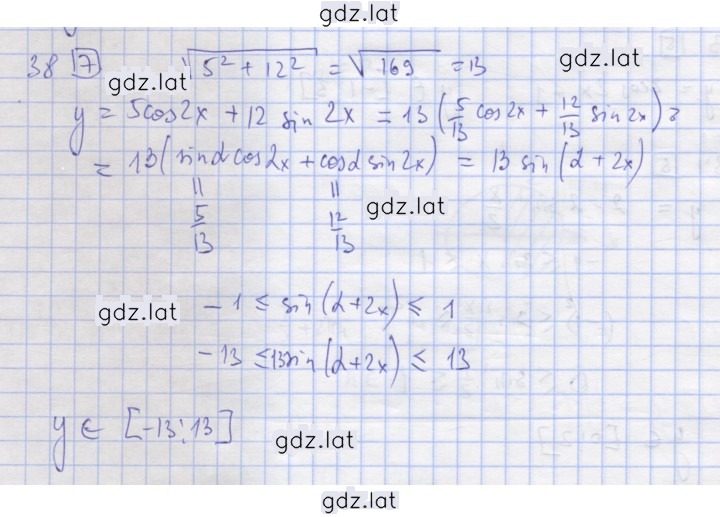 gdz.lat
38 7 √(5² + 12²) = √169 = 13 gdz.lat
gdz.lat
y = 5cos2x + 12 sin 2x = 13 (5/13 cos2x + 12/13 sin 2x) =
= 13(sinα cos2x + cosα sin2x) = 13 sin(α + 2x)
= =
5/13 12/13 gdz.lat
gdz.lat - 1 ≤ sin(α+2x) ≤ 1
- 13 ≤ 13sin(α+2x) ≤ 13
y ∈ [-13; 13]
gdz.lat
gdz.lat